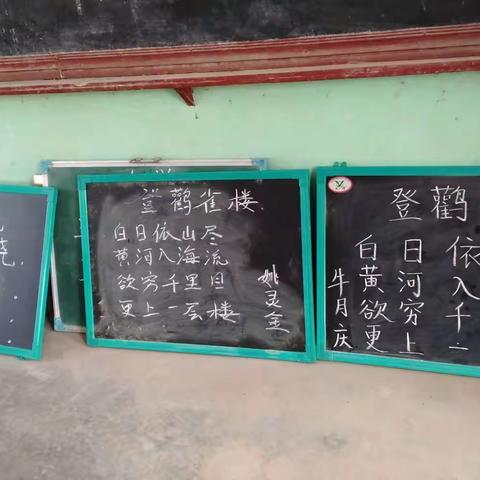 登鹳雀楼
白日依山尽
黄河入海流
欲穷千里目
更上一层楼
姚灵金
登鹳
白日依
黄河入
欲穷千
更上一
牛月庆